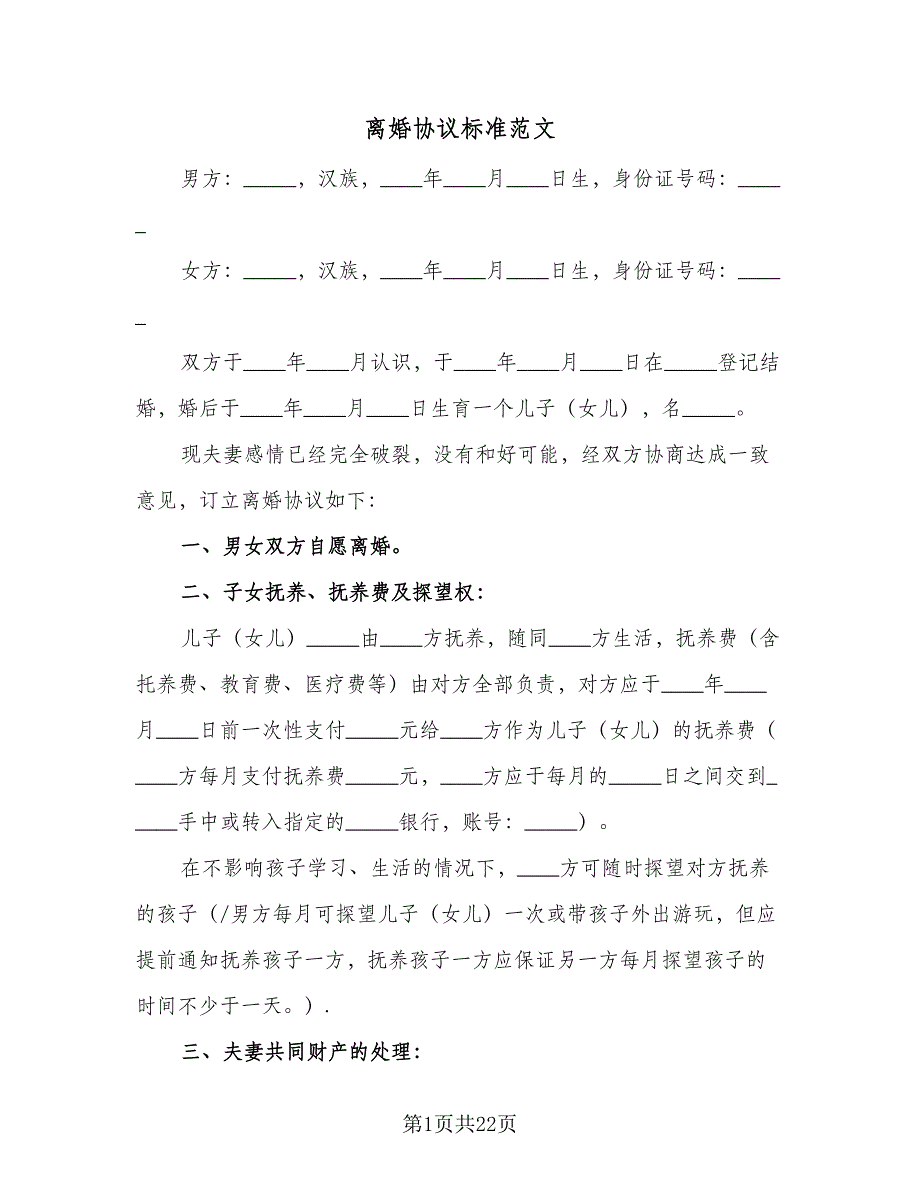 离婚协议标准范文
男方：_____，汉族，____年____月____日生，身份证号码：____
_
女方：_____，汉族，____年____月____日生，身份证号码：____
_
双方于____年____月认识，于____年____月____日在_____登记结
婚，婚后于____年____月____日生育一个儿子（女儿），名_____。
现夫妻感情已经完全破裂，没有和好可能，经双方协商达成一致
意见，订立离婚协议如下：
一、男女双方自愿离婚。
二、子女抚养、抚养费及探望权：
儿子（女儿）_____由____方抚养，随同____方生活，抚养费（含
托养费、教育费、医疗费等）由对方全部负责，对方应于____年____
月____日前一次性支付_____元给____方作为儿子（女儿）的抚养费（
____方每月支付抚养费_____元，____方应于每月的_____日之间交到_
____手中或转入指定的_____银行，账号：_____）。
在不影响孩子学习、生活的情况下，____方可随时探望对方抚养
的孩子（/男方每月可探望儿子（女儿）一次或带孩子外出游玩，但应
提前通知抚养孩子一方，抚养孩子一方应保证另一方每月探望孩子的
时间不少于一天。）.
三、夫妻共同财产的处理：
第1页共22页